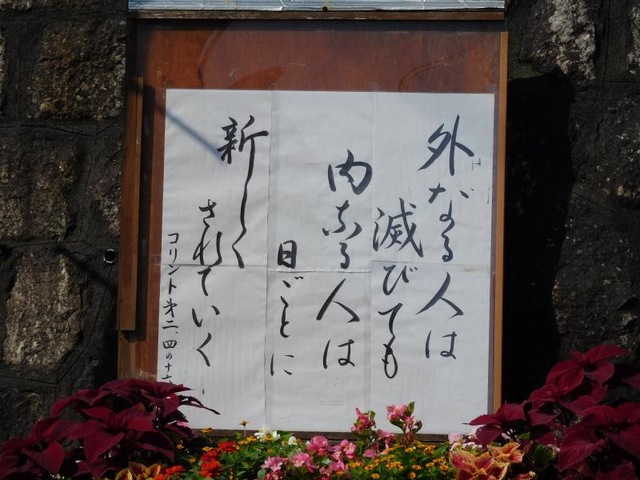 外なる人は
滅びても
内なる人は
日ごとに
新しく
されていく
コリント第二、四の十